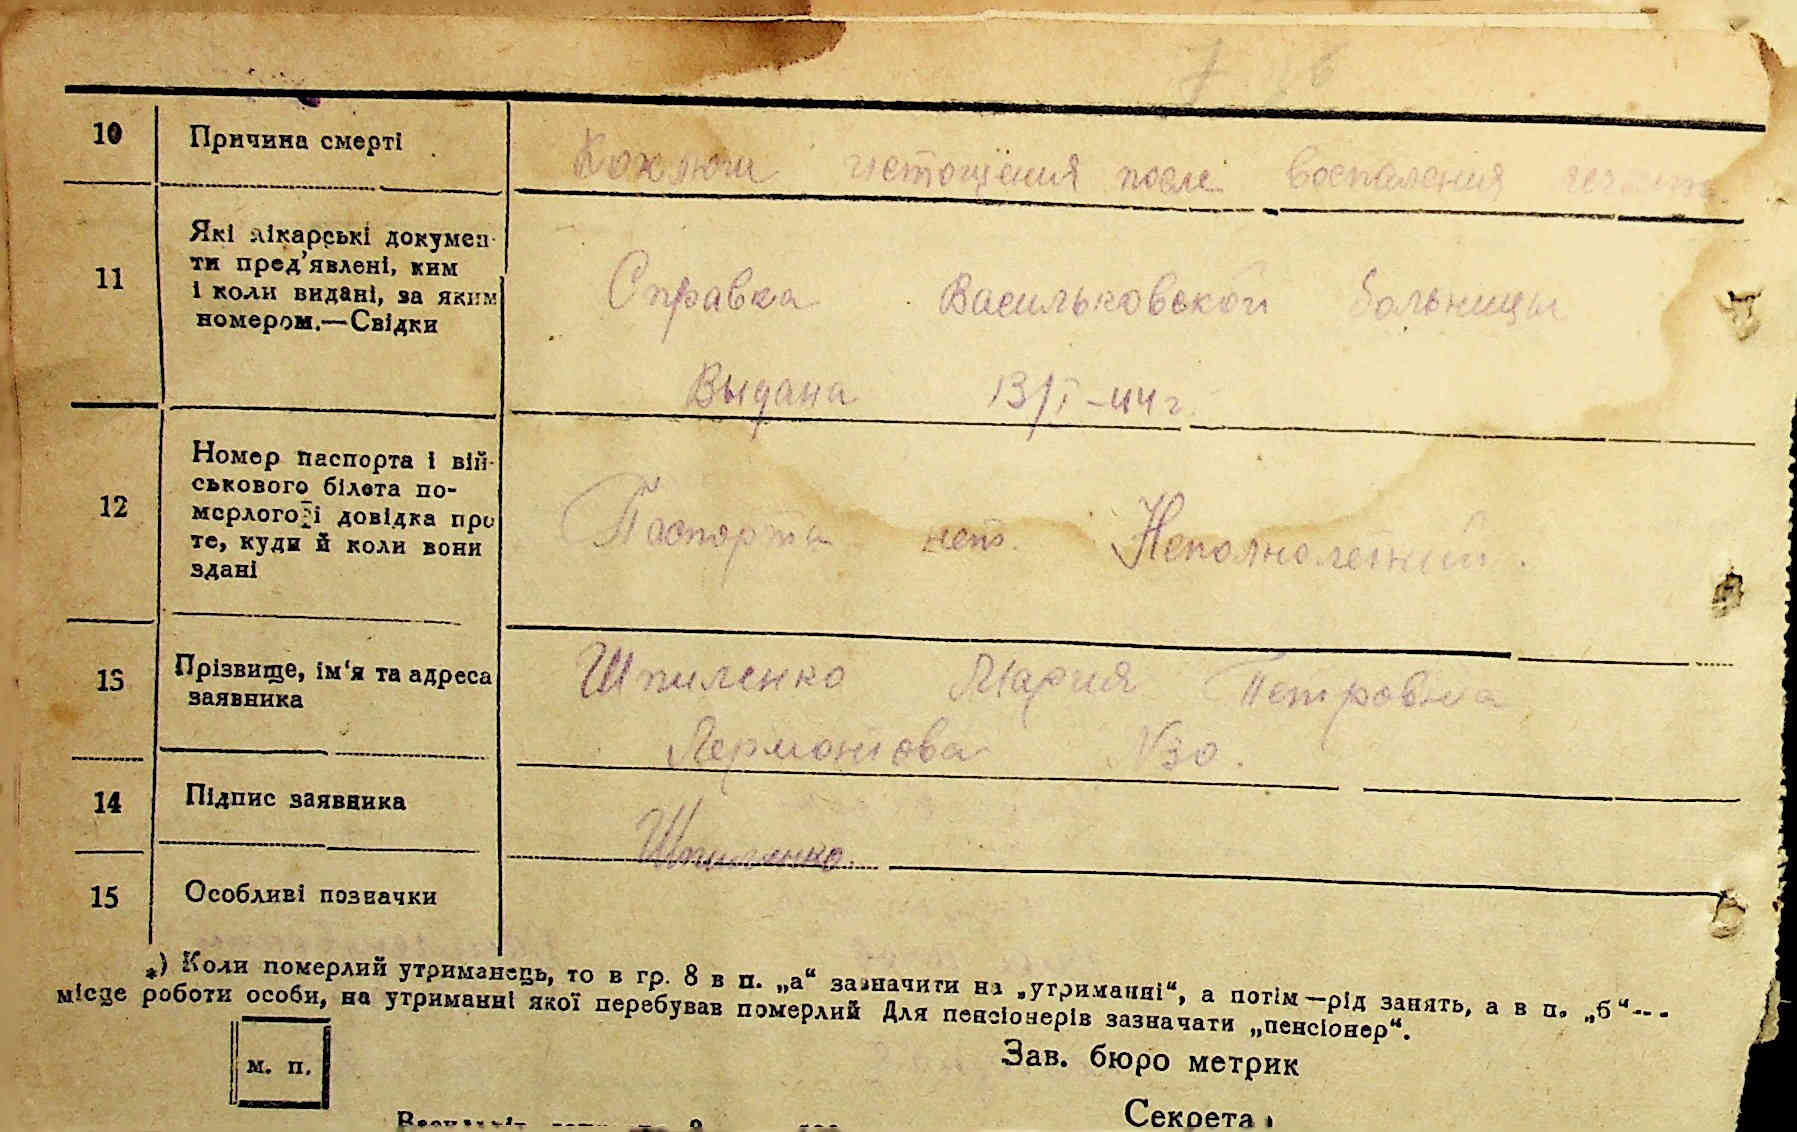 10 Причина смерті Коклюш истощения после воспаления
11 Які лікарські докумен-
ти пред'явлені, ким
і коли видані, за яким
номером.—Свідки
Справка Васильковской больницы
Выдана 13/I-44 г.
12 Номер паспорта і вій-
ськового білета по-
мерлого і довідка про
те, куди й коли вони
здані
Паспорта нет. Неполнолетний.
13 Прізвище, ім'я та адреса
заявника
Шпиленко Мария Петровна
Лермонтова №30.
14 Підпис заявника Шпиленко.
15 Особливі позначки
*) Коли померлий утриманець, то в гр. 8 в п. „а“ зазначити на „утриманні“, а потім—рід занять, а в п. „б“---
місце роботи особи, на утриманні якої перебував померлий Для пенсіонерів зазначати „пенсіонер“.
м. п.
Зав. бюро метрик
Секрета